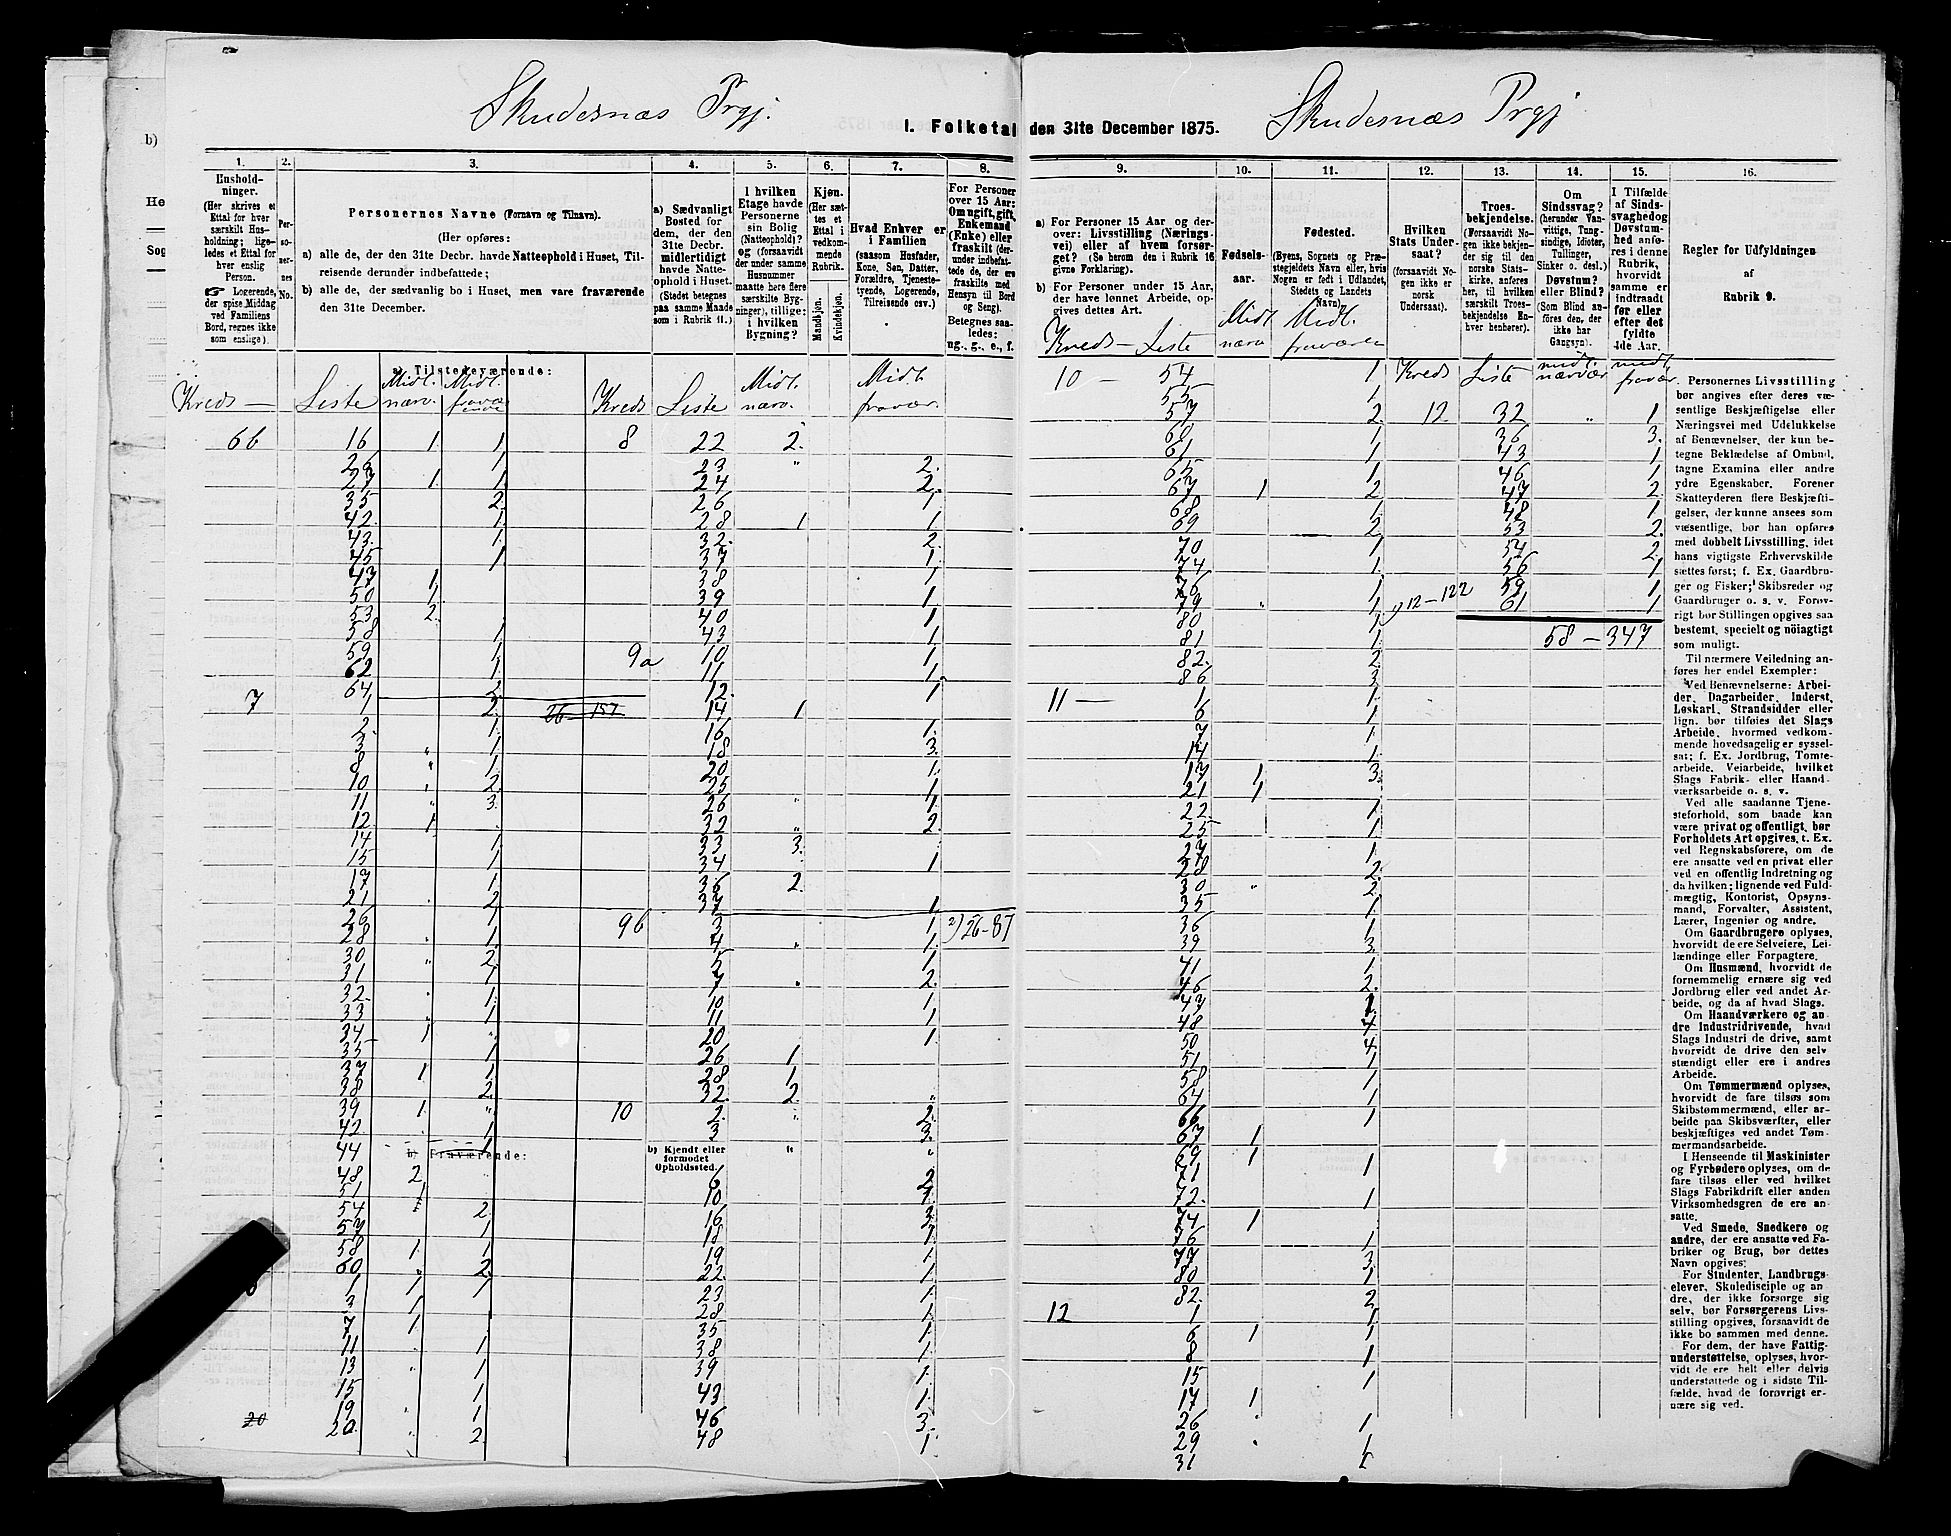 Skudesnæs Prgj.
Skudesnæs Prgj
I. Folketal den 31te December 1875.
b)
He
Sog
1.
2.
3.
4.
5.
6.
7.
8.
9.
10.
11.
12.
13.
14.
15.
16.
Hushold-
ninger.
(Her skrives et
Ettal for hver
særskilt Hus-
holdning; lige-
ledes et Ettal for
hver enslig
Person.
Logerende,
der spise Middag
ved Familiens
Bord, regnes ikke
som enslige).
Per-
so-
ner-
nes
No.
Personernes Navne (Fornavn og Tilnavn).
(Her opføres:
a) alle de, der den 31te Decbr. havde Natteophold i Huset, Til-
reisende derunder indbefattede;
b) alle de, der sædvanlig bo i Huset, men vare fraværende
den 31te December.
a) Sædvanligt
Bosted for
dem, der den
31te Decbr.
midlertidigt
havde Natte-
ophold i Huset.
(Stedet betegnes
paa samme Maade
som i Rubrik 11.)
I hvilken
Etage havde
Personerne
sin Bolig
(Natteophold)?
og (forsaavidt
der under samme
Husnummer
maatte høre flere
særskilte Byg-
ninger), tillige:
i hvilken
Bygning?
Kjøn.
(Her sæt-
tes et
Ettal i
vedkom-
mende
Rubrik.
Mandkjøn.
Kvindekjøn.
Hvad Enhver er
i Familien
(saasom Husfader,
Kone, Søn, Datter,
Forældre, Tjeneste-
tyende, Logerende,
Tilreisende osv.)
For Personer
over 15 Aar:
Om ugift, gift,
Enkemand
(Enke) eller
fraskilt (der-
under indbefat-
tede de, der ere
fraskilte med
Hensyn til Bord
og Seng).
Betegnes saa-
ledes:
ug., g., e., f.
a) For Personer 15 Aar og der-
over: Livsstilling (Nærings-
vei) eller af hvem forsør-
get? (Se herom den i Rubrik 16
givne Forklaring).
b) For Personer under 15 Aar,
der have lønnet Arbeide, op-
gives dettes Art.
Fødsels-
aar.
Fødested.
(Byens, Sognets og Præ-
stegjeldets Navn eller, hvis
Nogen er født i Udlandet,
Stedets og Landets
Navn).
Hvilken
Stats Under-
saat?
(forsaavidt No-
gen ikke er
norsk
Undersaat).
Troes-
bekjendelse.
(Forsaavidt No-
gen ikke bekjen-
der sig til den
norske Stats-
kirke, anføres
her, til hvilken
særskilt Troes-
bekjendelse En-
hver henhører).
Om
Sindssvag?
(herunder Van-
vittige, Tung-
sindige, Idioter,
Tullinger,
Sinker o. desl.)
Døvstum?
eller Blind?
(Som Blind an-
føres den, der
ikke har
Gangsyn).
I Tilfælde
af Sinds-
svaghed og
Døvstum-
hed anfø-
res i denne
Rubrik,
hvorvidt
samme er
indtraadt
før eller
efter det
fyldte
4de Aar.
Regler for Udfyldningen
af
Rubrik 9.
a) Tilstedeværende:
Kreds — Liste Midt. nærv. Midt. fraværende
Kreds Liste Midt. nærv. Midt. fravær.
Kreds — Liste Midt. nærv. Midt. fraværen
Kreds Liste midt. nærvær midt. fravær.
6b 16 1 1
26 1
27 1 1
35 2
42 1
43 1
45 1
47 1
50 1
53 2
58 1
59 1
62 1
64 2
7 1 2
2 1
3 " 1
8 " 1
10 2
11 " 3
12 1
14 1
15 1
17 1
21 2
26 1
28 1
30 " 2
31 1
32 1
33 1
34 1 "
35 1
37 1 1
38 2
39 1 "
42 1
44 1
b) Fraværende:
48 2
51 1
54 2
57 1
58 1 1
60 2
1 1 1
3 1
7 1
11 1
13 1
15 1
19 1
20 2
20
26 — 157
8 22 2
23 " 2
24 2
26 1
28 1 1
32 2
37 1
38 1
39 1
40 1
43 1
9a 10 1
11 1
12 1
14 1
16 1
18 3
20 1
25 1
26 " 1
32 " 2
33 3
34 1
36 2
37 1
9b 3 1 2) 26-87
4 " 1
5 1
7 " 2
10 1
11 1
20 1
26 1
28 1
32 2 "
10 2 " 2
3 3
b) Kjendt eller
formodet
Opholdssted.
6 2
10 1
16 3
18 1
19 1
22 1
23 1
28 1
35 1
38 1
39 1
43 1
46 3
48 1
10 — 54 1
55 1
57 2
60 1
61 1
65 1
67 1 2
68 1
69 2
70 1
74 1
76 1
79 " 1
80 1
81 1
82 2
86 3
11 — 1 1
6 1
7 1
14 1
17 1 3
21 1
22 1
25 1
27 1
28 2
30 " 2
35 1
36 1
39 3
41 1
46 2
47 1
48 4
50 4
51 1
58 1
64 1
66 1
67 1
69 1 1
71
72 1
74 1
76 1
77 3
80 1
82 2
12 1 1
6 1 1
8 1
15 1
17 1
26 1
29 1
31
12 32 " 1
36 3
43 1
46 1
47 2
48 1
53 2
54 2
56 1
59 1
61 1
12 — 122
58 — 347
Personernes Livsstilling
bør angives efter deres væ-
sentlige Beskjæftigelse eller
Næringsvei med Udelukkelse
af Benævnelser, der kun be-
tegne Beklædelse af Ombud,
tagne Examina eller andre
ydre Egenskaber. Forener
Skatteyderen flere Beskjæfti-
gelser, der kunne ansees som
væsentlige, bør han opføres
med dobbelt Livsstilling, idet
hans vigtigste Erhvervskilde
sættes først; f. Ex. Gaardbru-
ger og Fisker; Skibsreder og
Gaardbruger o. s. v. Forøv-
rigt bør Stillingen opgives saa
bestemt, specielt og nöiagtigt
som muligt.
Til nærmere Veiledning an-
føres her endel Exempler:
Ved Benævnelserne: Arbei-
der, Dagarbeider, Inderst,
Løskarl, Strandsidder eller
lign. bør tilføies det Slags
Arbeide, hvormed vedkom-
mende hovedsagelig er syssel-
sat; f. Ex. Jordbrug, Tomte-
arbeide, Veiarbeide, hvilket
Slags Fabrik- eller Haand-
værksarbeide o. s. v.
Ved alle saadanne Tjene-
steforhold, som baade kan
være privat og offentligt, bør
Forholdets Art opgives, t. Ex.
ved Regnskabsførere, om de
ere ansatte ved en privat eller
ved en offentlig Indretning og
da hvilken; lignende ved Fuld-
mægtig, Kontorist, Opsyns-
mand, Forvalter, Assistent,
Lærer, Ingeniør og andre.
Om Gaardbrugere oplyses,
hvorvidt de ere Selveiere, Lei-
lændinge eller Forpagtere.
Om Husmænd, hvorvidt de
fornemmelig ernære sig ved
Jordbrug eller ved andet Ar-
beide, og da af hvad Slags.
Om Haandværkere og an-
dre Industridrivende, hvad
Slags Industri de drive, samt
hvorvidt de drive den selv-
stændigt eller ere i andres
Arbeide.
Om Tømmermænd oplyses,
hvorvidt de fare tilsøs som
Skibstømmermænd, eller ar-
beide paa Skibsværfter, eller
beskjæftiges ved andet Tøm-
mermandsarbeide.
I Henseende til Maskinister
og Fyrbødere oplyses, om de
fare tilsøs eller ved hvilket
Slags Fabrikdrift eller anden
Virksomhedsgren de ere an-
satte.
Ved Smede, Snedkere og
andre, der ere ansatte ved Fa-
briker og Brug, bør dettes
Navn opgives;
For Studenter, Landbrugs-
elever, Skoledisciple og an-
dre, der ikke forsørge sig
selv, bør Forsørgerens Livs-
stilling opgives, forsaavidt de
ikke bo sammen med denne.
For dem, der have Fattig-
understøttelse, oplyses, hvor-
vidt de ere helt eller delvis
understøttede og i sidste Til-
fælde, hvad de forøvrigt er-
nære sig ved.